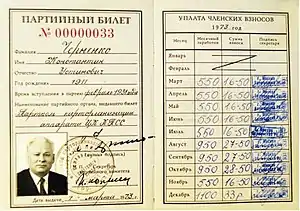 ПАРТИЙНЫЙ БИЛЕТ
№ 00000033
Фамилия Черненко
Имя Константин
Отчество Устинович
Год рождения 1911
Время вступления в партию февраль 1931 года
Наименование партийного органа, выдавшего билет
Партком парторганизации
аппарата ЦК КПСС
(личная подпись)
М. П.
Секретарь
комитета
Дата выдачи 1 марта 1973г.
УПЛАТА ЧЛЕНСКИХ ВЗНОСОВ
1973 год
Месяц Месячный заработок Сумма взноса Подпись секретаря
Январь
Февраль
Март 550 16-50
Апрель 550 16-50
Май 550 16-50
Июнь 550 16-50
Июль 550 16-50
Август 950 27-50
Сентябрь 950 27-50
Октябрь 950 27-50
Ноябрь 550 16-50
Декабрь 1100 33р.